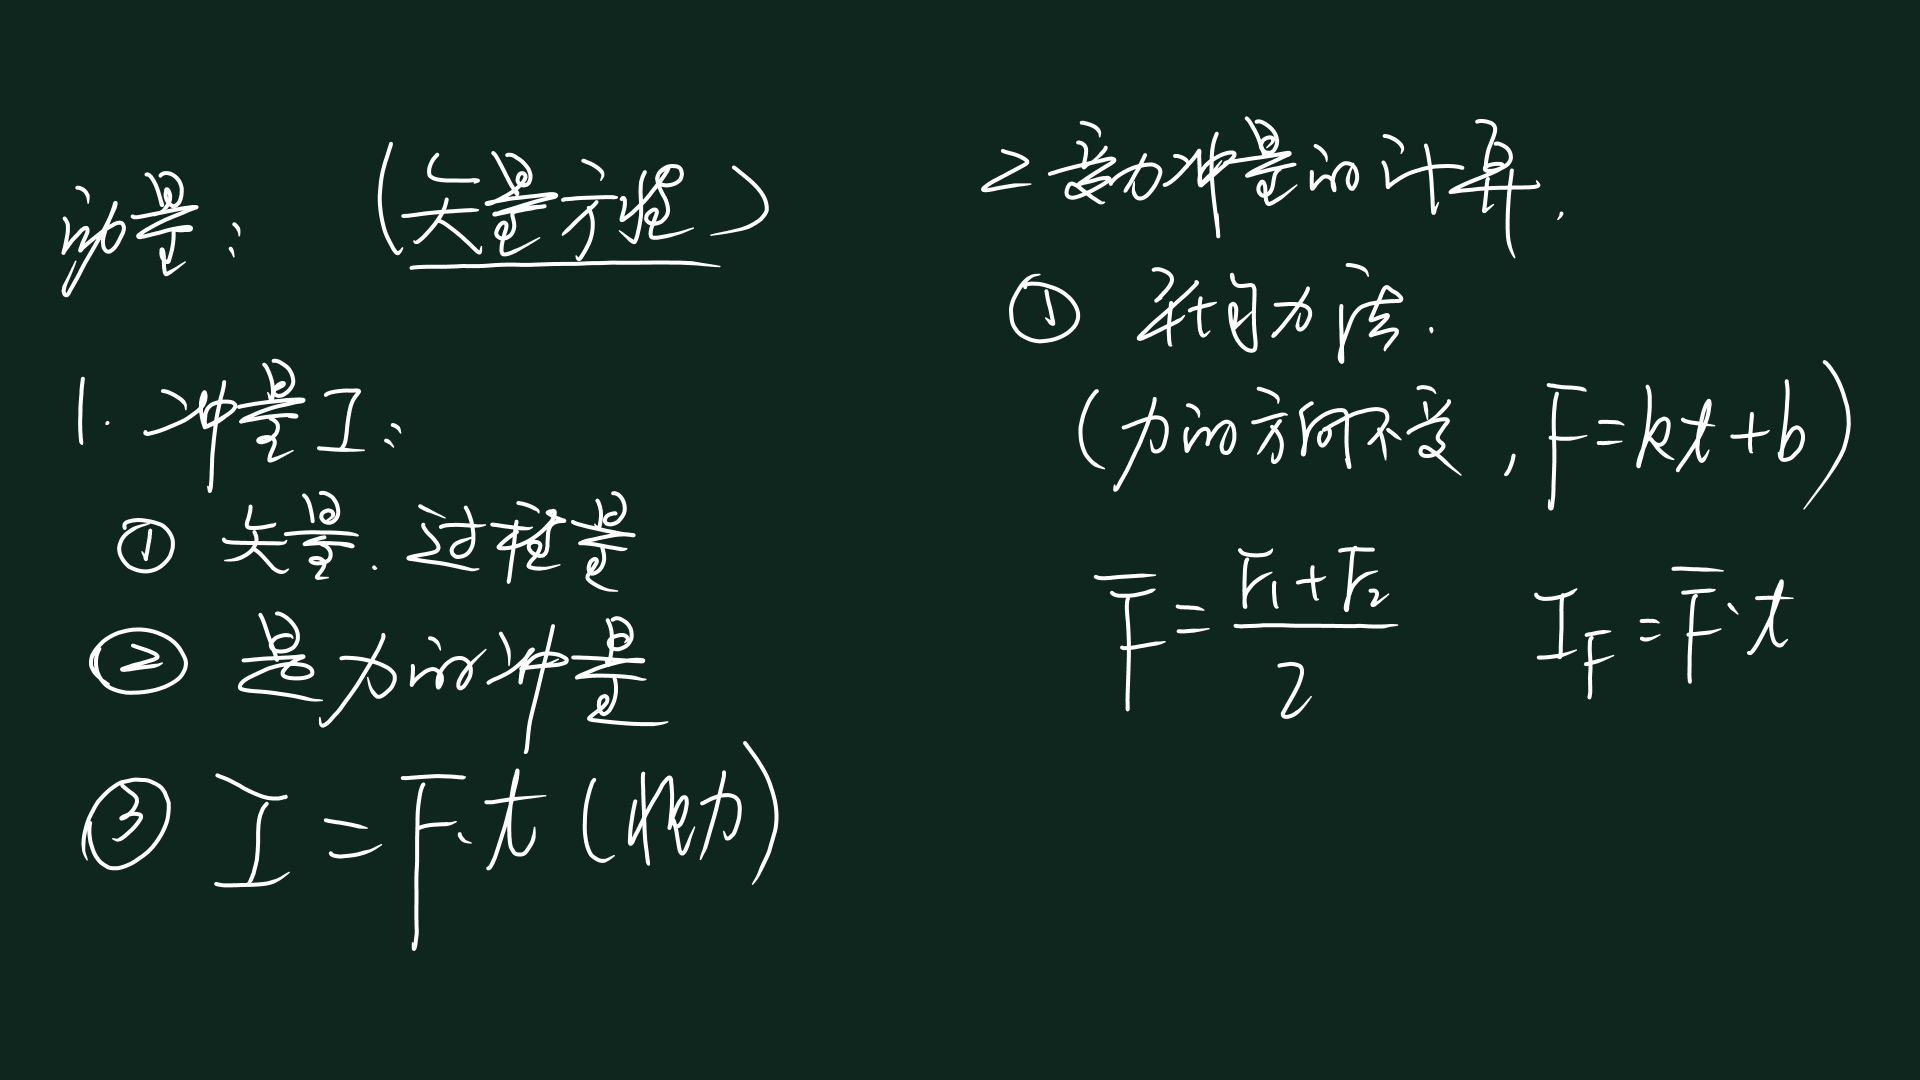 动量：（矢量方程）
1. 冲量I：
① 矢量．过程量
② 是力的冲量
③ I = F·t（恒力）
2 变力冲量的计算．
① 平均力法．
（力的方向不变，F=kt+b）
F̅ = (F₁+F₂)/2  I_F = F̅·t